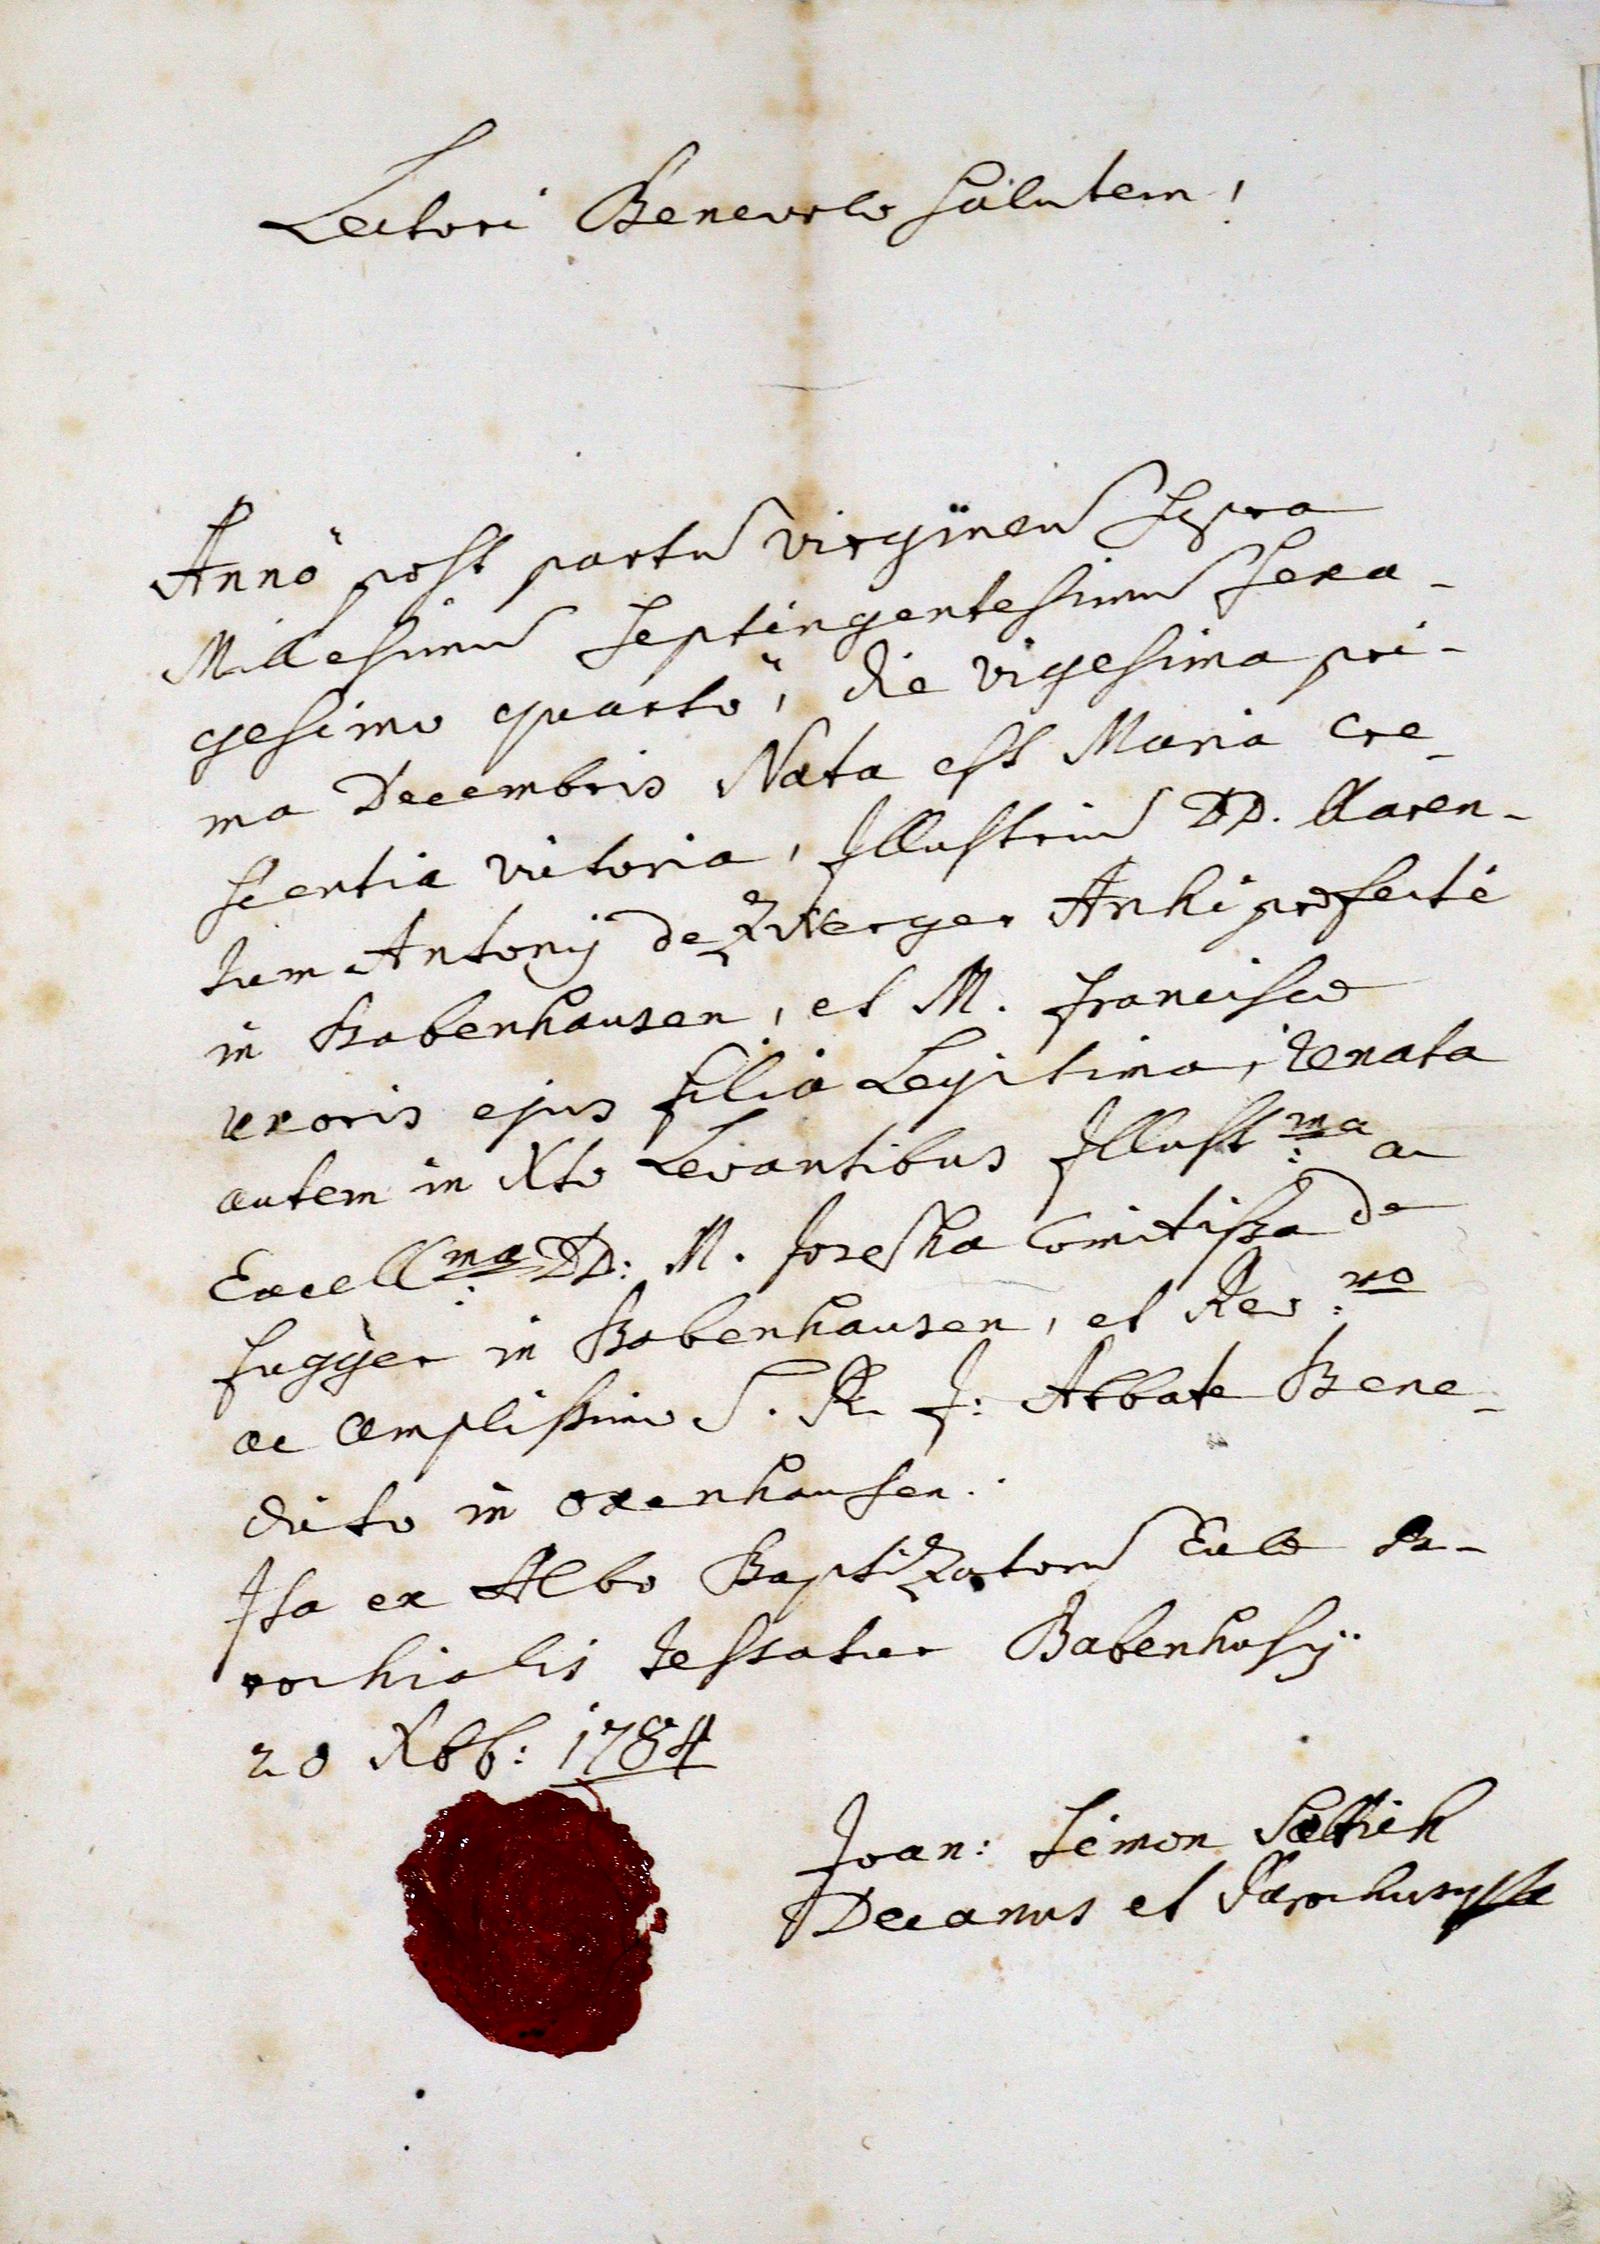 Lectori Benevolo Salutem!
Anno post partu virgineu supra
Millesimu septingentesimu sexa-
gesimo quarto, die vigesima pri-
ma Decembris Nata est Maria Cre-
scentia Victoria, Illustriu DD. Claren-
tium Antonij de Zwerger Archiprefecti
in Babenhausen, et M. Francisce
uxoris ejus filia Legitima, renata
autem in Xto Levantibus Illust:ma ac
Excell:ma DD: M. Josepha Comitissa de
Fugger in Babenhausen, et Rev:mo
ac amplissimo S. R. J: Abbate Bene-
dicto in Oxenhausen.
Ita ex Albo Baptizatoru Eccle Pa-
rochialis testatur Babenhusij
20 Xbb: 1784
Joan: Simon
Decanus et Parochus